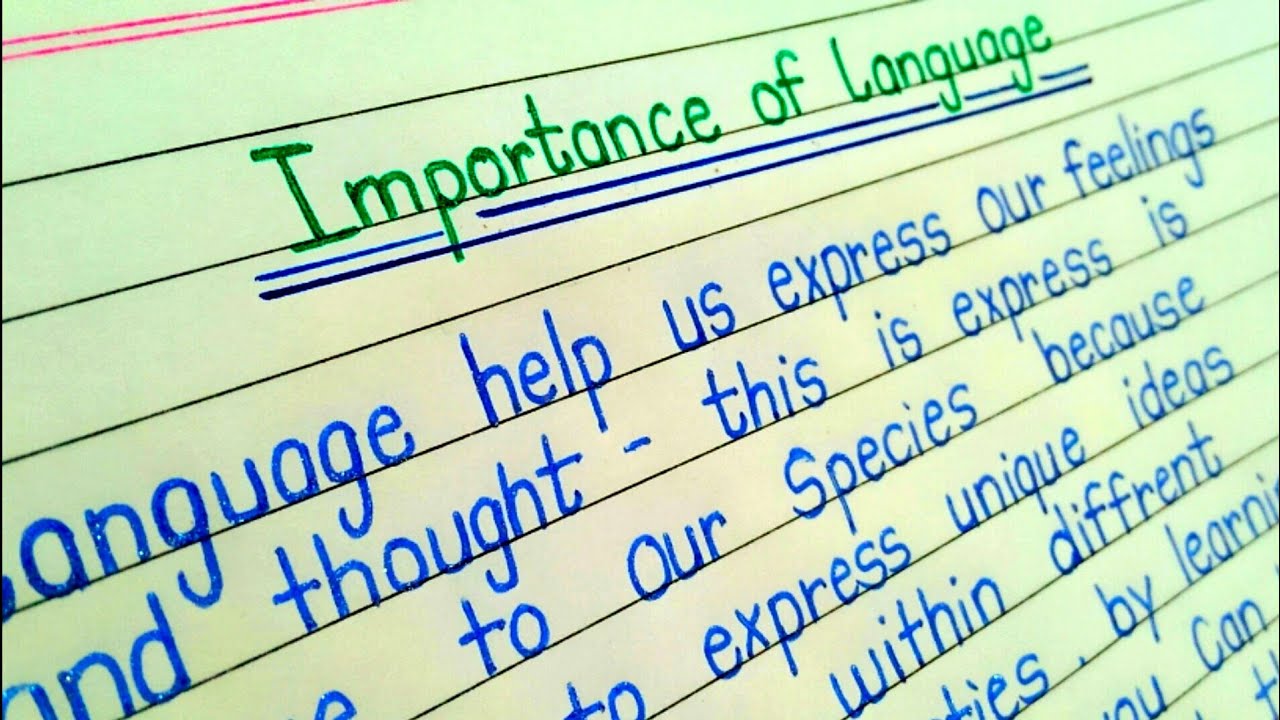 Importance of Language
Language help us express our feelings
and thought - this is express is
to our Species because
to express unique ideas
within diffrent
by learni
you can